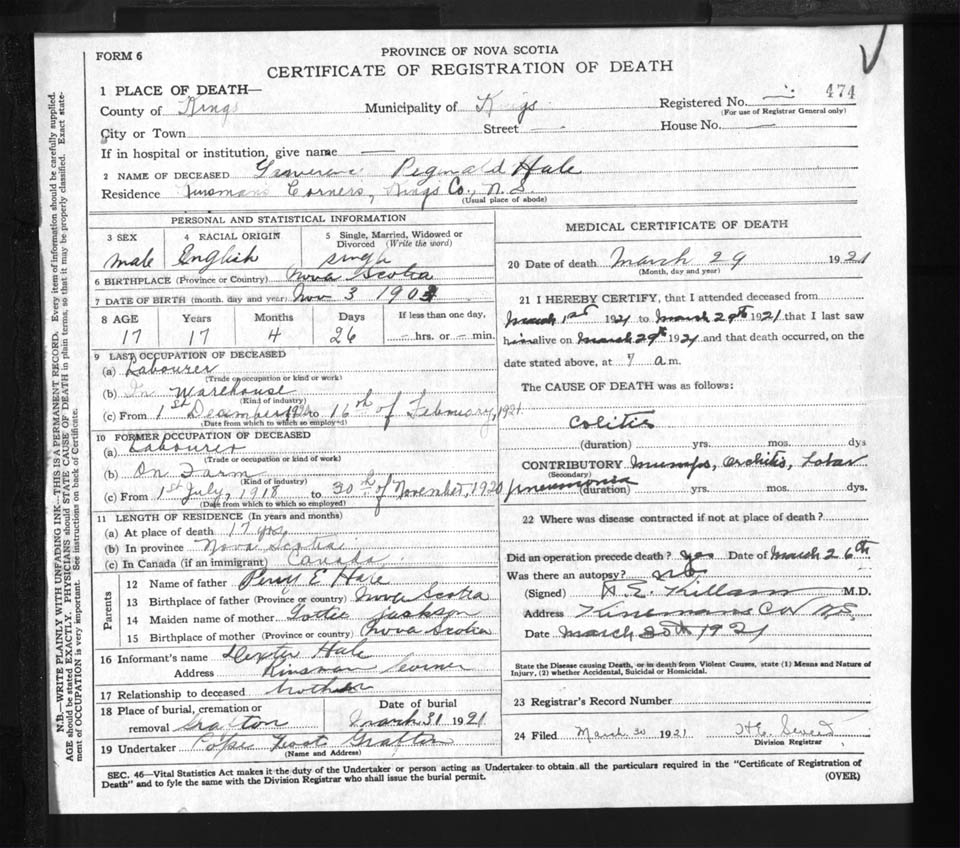 FORM 6
PROVINCE OF NOVA SCOTIA
CERTIFICATE OF REGISTRATION OF DEATH
1 PLACE OF DEATH—
County of Kings Municipality of Kings Registered No. — 474
(For use of Registrar General only)
City or Town Street — House No. —
If in hospital or institution, give name —
2 NAME OF DECEASED Reginald Hale
Residence Kinsmans Corners, Kings Co., N. S.
(Usual place of abode)
PERSONAL AND STATISTICAL INFORMATION
3 SEX 4 RACIAL ORIGIN 5 Single, Married, Widowed or Divorced (Write the word)
male English single
6 BIRTHPLACE (Province or Country) Nova Scotia
7 DATE OF BIRTH (month, day and year) Nov 3 1903
8 AGE Years Months Days If less than one day,
17 17 4 26 — hrs. or — min.
9 LAST OCCUPATION OF DECEASED
(a) Labourer
(Trade or occupation or kind or work)
(b) In Warehouse
(Kind of industry)
(c) From 1st December 1920 to 16th of February, 1921
(Date from which to which so employed)
10 FORMER OCCUPATION OF DECEASED
(a) Labourer
(Trade or occupation or kind of work)
(b) On Farm
(Kind of industry)
(c) From 1st July, 1918 to 30th of November, 1920
(Date from which to which so employed)
11 LENGTH OF RESIDENCE (In years and months)
(a) At place of death 17 yrs
(b) In province Nova Scotia
(c) In Canada (if an immigrant) Canada
Parents
12 Name of father Percy E. Hale
13 Birthplace of father (Province or country) Nova Scotia
14 Maiden name of mother Lottie Jackson
15 Birthplace of mother (Province or country) Nova Scotia
16 Informant's name Dexter Hale
Address Kinsman Corner
17 Relationship to deceased brother
18 Place of burial, cremation or removal Grafton Date of burial March 31 1921
19 Undertaker Grafton
(Name and Address)
MEDICAL CERTIFICATE OF DEATH
20 Date of death March 29 1921
(Month, day and year)
21 I HEREBY CERTIFY, that I attended deceased from
March 1st 1921 to March 29th 1921 that I last saw
him alive on March 29th 1921 and that death occurred, on the
date stated above, at 7 a.m.
The CAUSE OF DEATH was as follows:
Colitis
(duration) yrs. mos. dys
CONTRIBUTORY Mumps, Orchitis, Lobar
(Secondary)
pneumonia (duration) yrs. mos. dys.
22 Where was disease contracted if not at place of death?
Did an operation precede death? yes Date of March 26th
Was there an autopsy? no
(Signed) A. E. Killam M.D.
Address Kinsmans Cor N.S.
Date March 30th 1921
State the Disease causing Death, or in death from Violent Causes, state (1) Means and Nature of
Injury, (2) whether Accidental, Suicidal or Homicidal.
23 Registrar's Record Number
24 Filed March 30 1921
Division Registrar
SEC. 46—Vital Statistics Act makes it the duty of the Undertaker or person acting as Undertaker to obtain all the particulars required in the "Certificate of Registration of
Death" and to fyle the same with the Division Registrar who shall issue the burial permit. (OVER)
N.B.—WRITE PLAINLY WITH UNFADING INK—THIS IS A PERMANENT RECORD. Every item of information should be carefully supplied.
AGE should be stated EXACTLY. PHYSICIANS should STATE CAUSE OF DEATH in plain terms, so that it may be properly classified. Exact state-
ment of OCCUPATION is very important. See instructions on back of Certificate.